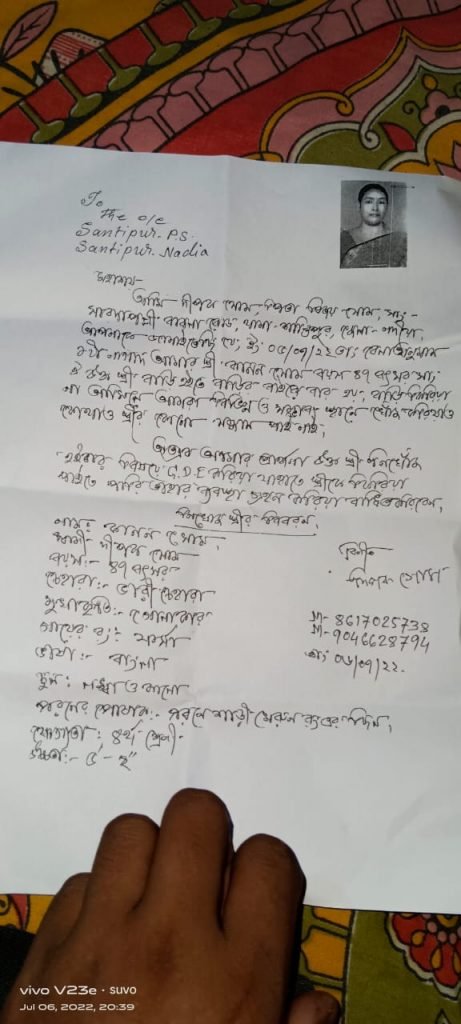 To
The o/c
Santipur. P.S.
Santipur. Nadia
মহাশয়-
আমি দীপক সোম, পিতা বিজয় সোম, সাং-
থানা- শান্তিপুর, জেলা- নদীয়া,
আপনাকে জানাইতেছি যে, ইং 05/07/22 তাং
আমার স্ত্রী কানন সোম বয়স 47 বৎসর
উক্ত স্ত্রী বাড়ি হইতে বাহির হইয়া যায় এবং বাড়ি ফিরিয়া
না আসিলে আমরা বিভিন্ন ও সম্ভাব্য স্থানে খোঁজ করিয়াও
কোথাও স্ত্রীর কোনো সন্ধান পাই নাই,
অতএব আমার প্রার্থনা উক্ত স্ত্রী নিখোঁজ
হইবার বিষয়ে G.D.E করিয়া যাহাতে স্ত্রীকে ফিরিয়া
পাইতে পারি তাহার ব্যবস্থা গ্রহন করিয়া বাধিত করিবেন,
নিখোঁজ স্ত্রীর বিবরন,
নাম: কানন সোম,
স্বামী- দীপক সোম
বয়স:- 47 বৎসর
চেহারা:- ভারী চেহারা
মুখাকৃতি:- গোলাকার
গায়ের রং:- ফর্সা
ভাষা:- বাংলা
চুল: লম্বা ও কালো
পরনের পোষাক:- পরনে শাড়ী
যোগ্যতা: ৪র্থ শ্রেনী-
উচ্চতা:- ৫'-২"
বিনীত
দীপক সোম
M- 8617025738
M- 9046628794
তাং 06/07/22.
vivo V23e · suvo
Jul 06, 2022, 20:39